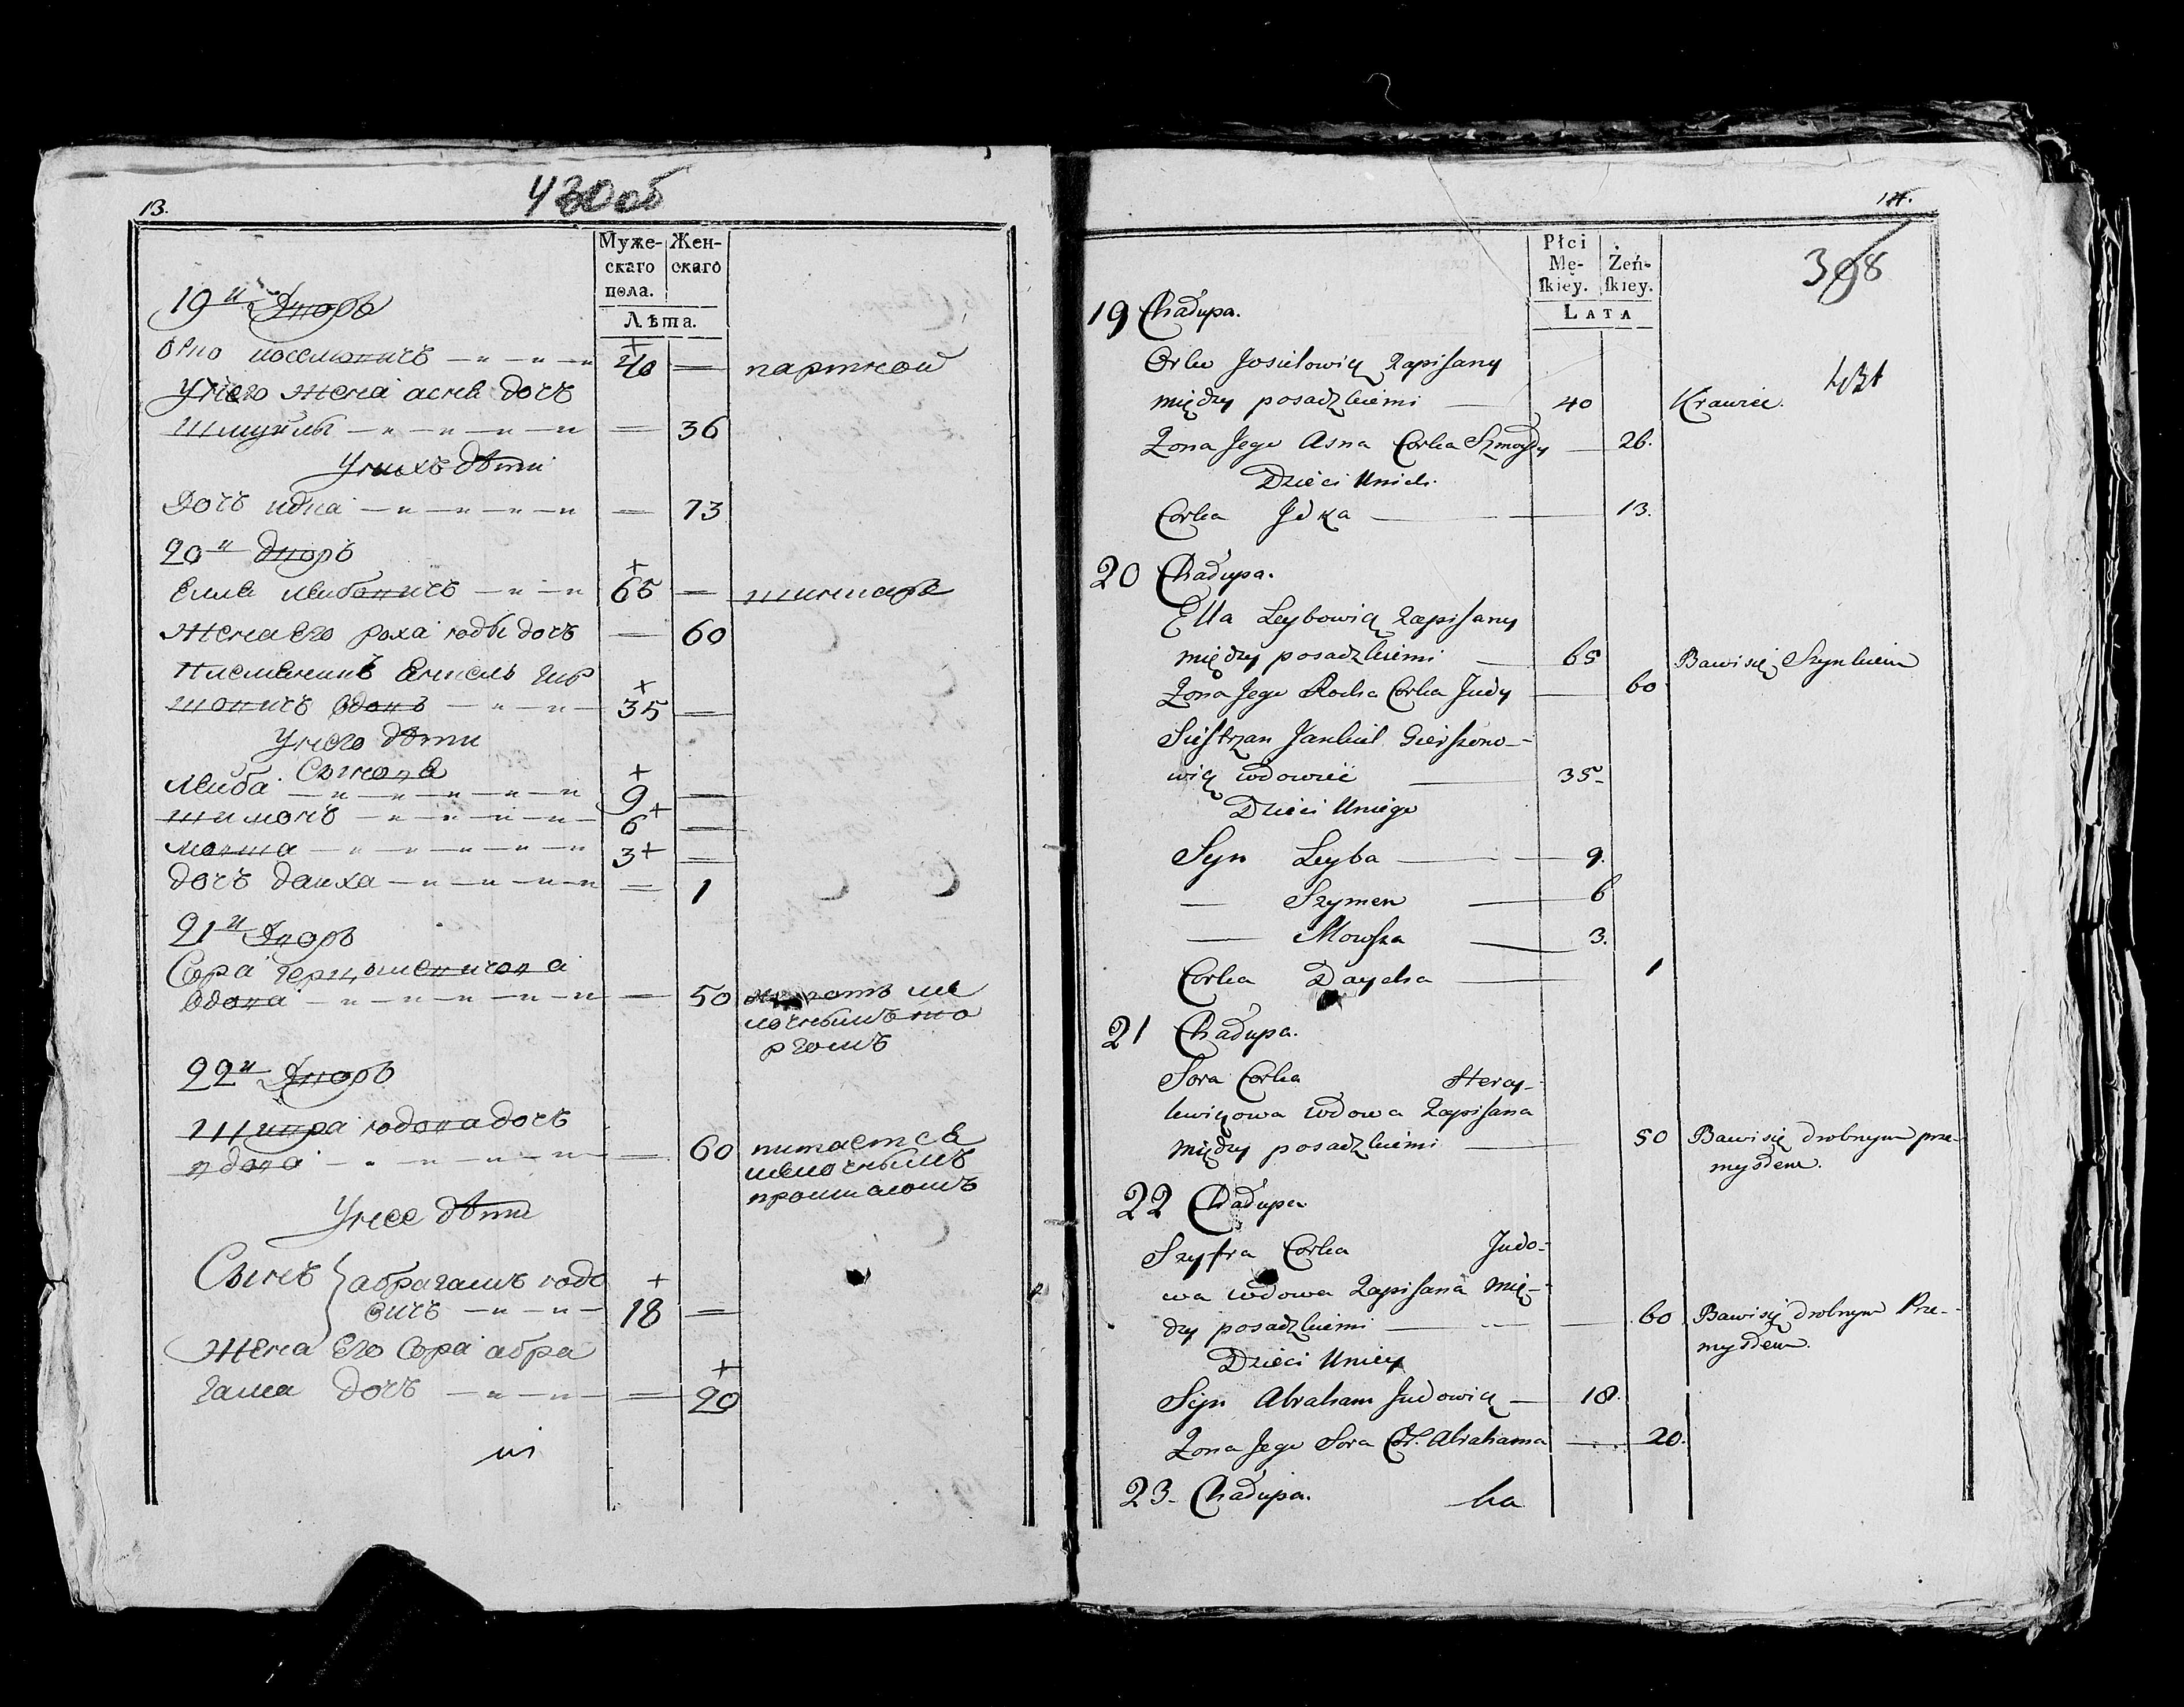 13.
430 об
Муже- Жен-
скаго скаго
пола.
Лѣта.
19й Дворъ
Орло иоселовичъ 40 партной
У него жена асна дочъ
Шмуйлы 36
У нихъ дѣти
Дочъ идка 13
20й дворъ
Елля лейбовичъ 65 шинкаръ
Жена Его роха юды дочъ 60
Племенникъ Енкель Гир
шовичъ вдовъ 35
У него дѣти
Сыновя
Лейба 9
шимонъ 6
мовша 3
дочъ дайха 1
21й Дворъ
Сора герцылевичова
вдова 50 ме
лочнымъ то
ргомъ
22й Дворъ
Шифра юдова дочъ
вдова 60 питается
мелочнымъ
промысломъ
У нее дѣти
Сынъ абрагамъ юдо
вичъ 18
Жена Его Сора абра
гама дочъ 20
14.
Płci
Mę- Żeń-
skiey. skiey.
LATA
398
431
19 Chałupa.
Orlo Josielowicz zapisany
między posadzkiemi 40 Krawiec.
Żona Jego Asna Corka Szmoyły 26.
Dzieci Unich.
Corka Jdka 13.
20 Chałupa.
Ella Leybowicz zapisany
między posadzkiemi 65 Bawi się Szynkiem
Żona Jego Rocha Corka Judy 60
Siestrzan Jankiel Gierszono-
wicz wdowiec 35
Dzieci Uniego
Syn Leyba 9.
— Szymen 6
— Mowsza 3.
Corka Daycha 1
21 Chałupa.
Sora Corka Hercy-
lewiczowa wdowa zapisana
między posadzkiemi 50 Bawi się drobnym prze-
mysłem.
22 Chałupa
Szyfra Corka Judo-
wa wdowa zapisana mię-
dzy posadzkiemi 60 Bawi się drobnym Prze-
mysłem.
Dzieci Uniey
Syn Abraham Judowicz 18.
Żona Jego Sora Cor. Abrahama 20.
23. Chałupa.